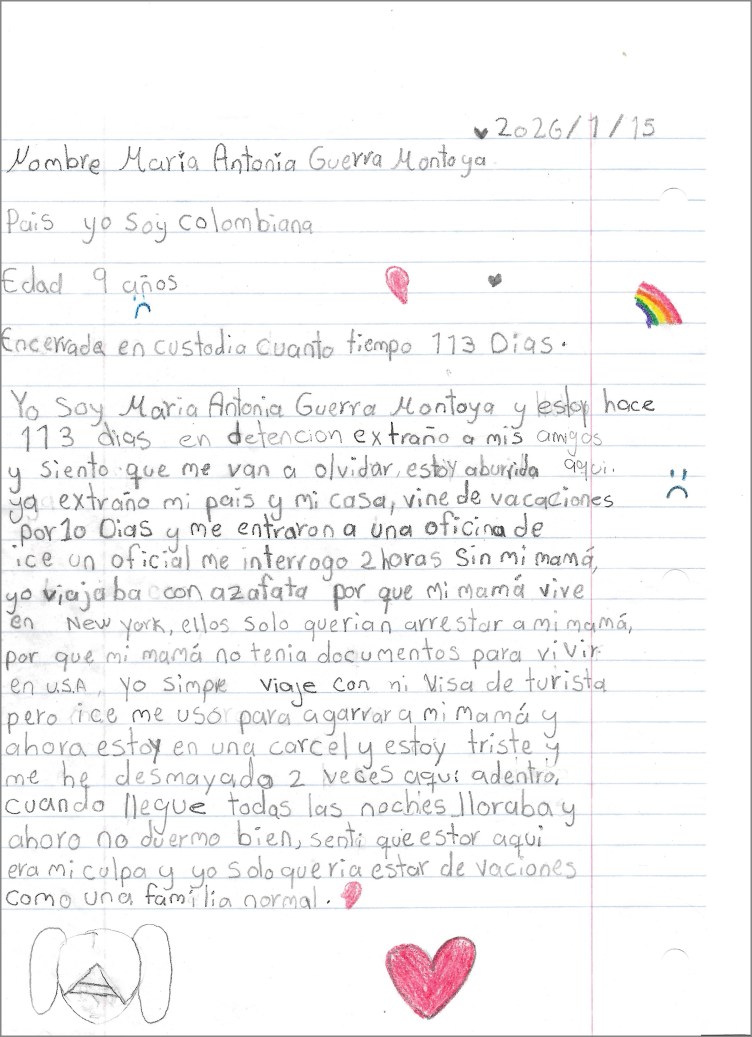 2026/1/15
Nombre Maria Antonia Guerra Montoya
Pais yo soy colombiana
Edad 9 años
Encerrada en custodia cuanto tiempo 113 Dias.
Yo soy Maria Antonia Guerra Montoya y estoy hace
113 dias en detencion extraño a mis amigos
y siento que me van a olvidar, estoy aburrida aqui.
ya extraño mi pais y mi casa, vine de vacaciones
por 10 Dias y me entraron a una oficina de
ice un oficial me interrogo 2 horas sin mi mamá,
yo viajaba con azafata por que mi mamá vive
en New york, ellos solo querian arrestar a mi mamá,
por que mi mamá no tenia documentos para vivir
en U.S.A, yo simpre viaje con mi visa de turista
pero ice me usó para agarrar a mi mamá y
ahora estoy en una carcel y estoy triste y
me he desmayado 2 veces aquí adentro,
cuando llegué todas las noches lloraba y
ahora no duermo bien, senti que estar aqui
era mi culpa y yo solo queria estar de vaciones
como una familia normal.